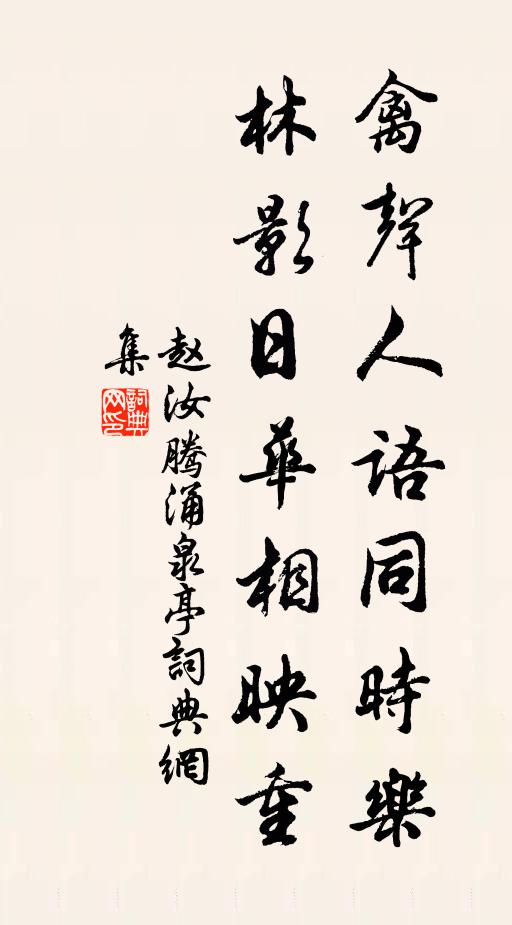 禽聲人語同時樂
林影日華相映重
赵汝腾涌泉亭詞典網
集
詞典网印